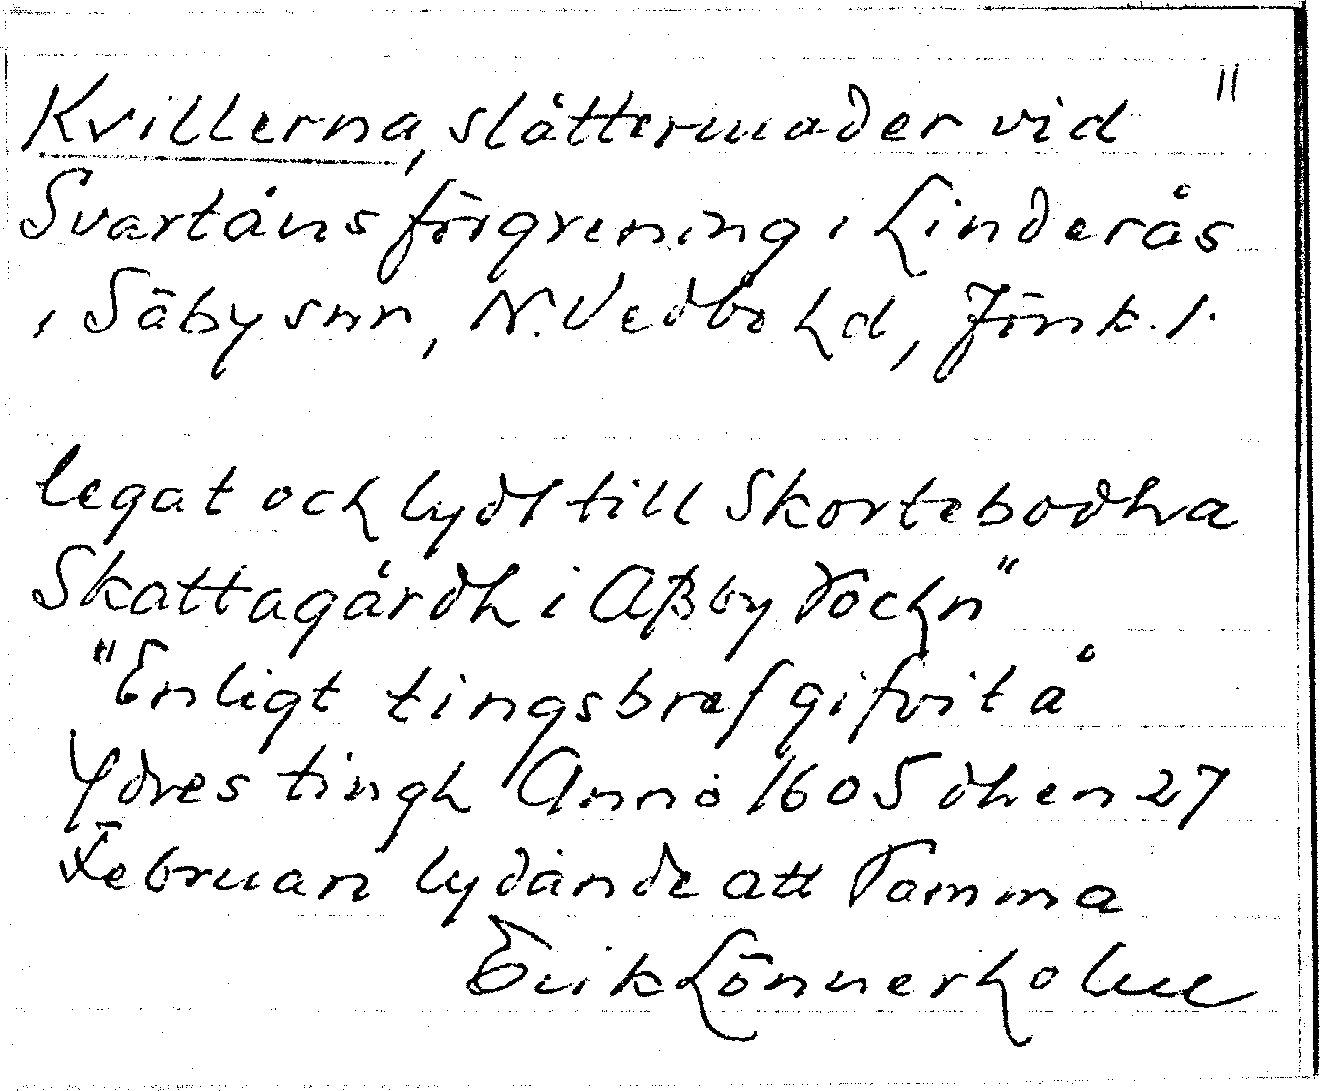 Kvillerna, slåttermader vid "
Svartåns förgrening i Linderås
i Säby snn, N. Vedbo hd, Jönk. l.
legat och lydt till Skortebodha
Skattagårdh i Aßby Sochn"
"Enligt tingsbref gifvit å
Ydres tingh Anno 1605 dhen 27
Februari lydande att Samma
Erik Lönnerholm